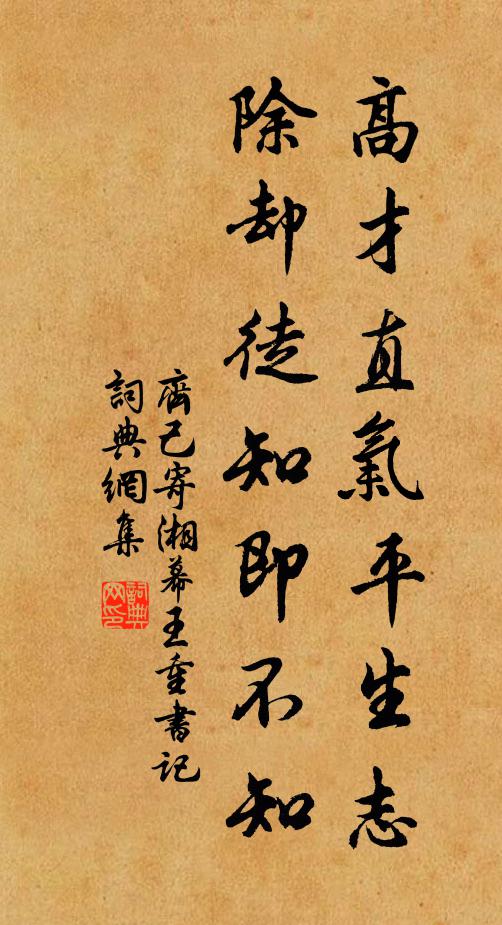 高才直氣平生志
除却徒知即不知
齊己寄湘幕王重書記
詞典網集
詞典網印